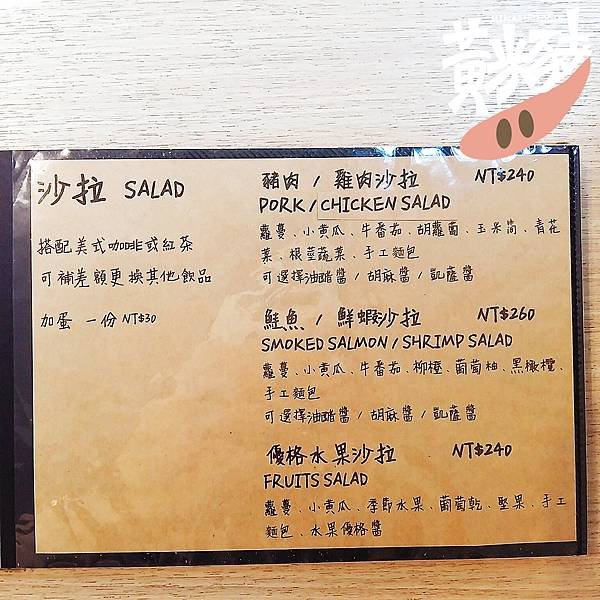 沙拉 SALAD
搭配美式咖啡或紅茶
可補差額更換其他飲品
加蛋 一份 NT$30
豬肉 / 雞肉沙拉 NT$240
PORK / CHICKEN SALAD
蘿蔓、小黃瓜、牛番茄、胡蘿蔔、玉米筒、青花
菜、根莖蔬菜、手工麵包
可選擇油醋醬 / 胡麻醬 / 凱薩醬
鮭魚 / 鮮蝦沙拉 NT$260
SMOKED SALMON / SHRIMP SALAD
蘿蔓、小黃瓜、牛番茄、柳橙、葡萄柚、黑橄欖、
手工麵包
可選擇油醋醬 / 胡麻醬 / 凱薩醬
優格水果沙拉 NT$240
FRUITS SALAD
蘿蔓、小黃瓜、季節水果、葡萄乾、堅果、手工
麵包、水果優格醬